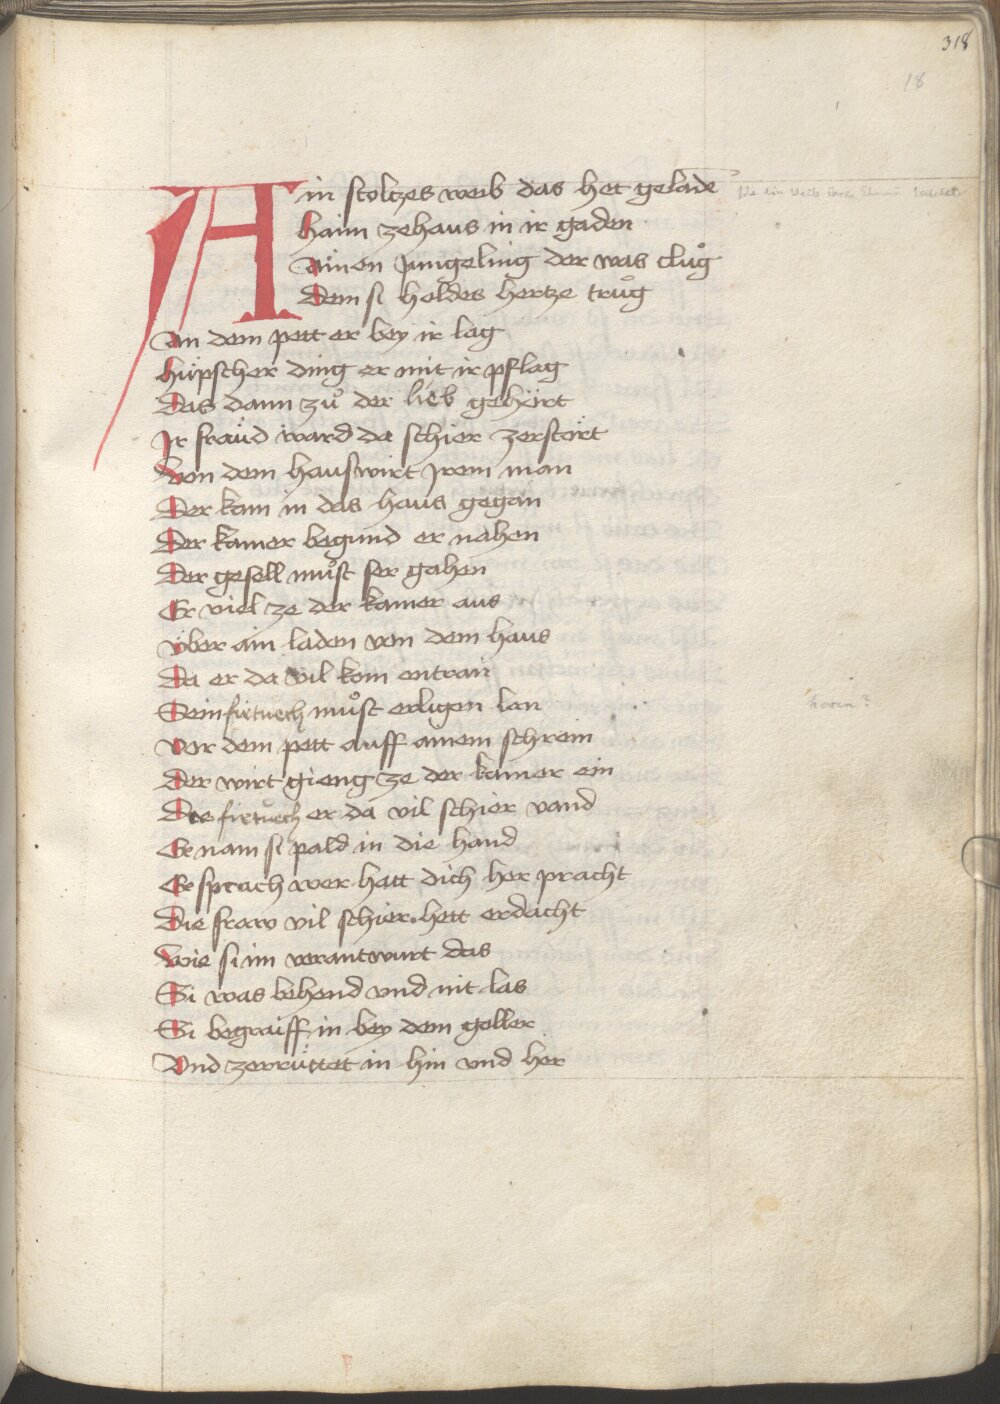 318
18
Ain stoltzes weib das het gelade
haim zehaus in ir gaden
Ainen Jungeling der was clůg
Dem si holdes hertze trůg
An dem pett er bey ir lag
hüpscher ding er mit ir pflag
Das dann zů der lieb gehört
Ir fraüd ward da schier zerstört
Von dem hauswirt Irem man
Der kam in das haus gegan
Der kamer begund er nahen
Der gesell můst ser gahen
Er viel ze der kamer aus
Vber ain laden von dem haus
Da er da vil kom entran
Sein firtuech můst er ligen lan
Vor dem pett auff ainem schrein
Der wirt gieng ze der kamer ein
Die firtuech er da vil schier vand
Er nam si pald in die hand
Er sprach wer hatt dich her pracht
Die fraw vil schier hett erdacht
Wie si im verantwurt das
Si was behend vnd nit las
Si begraiff in bey dem goller
Vnd zerrüttet in hin vnd her
hosen?